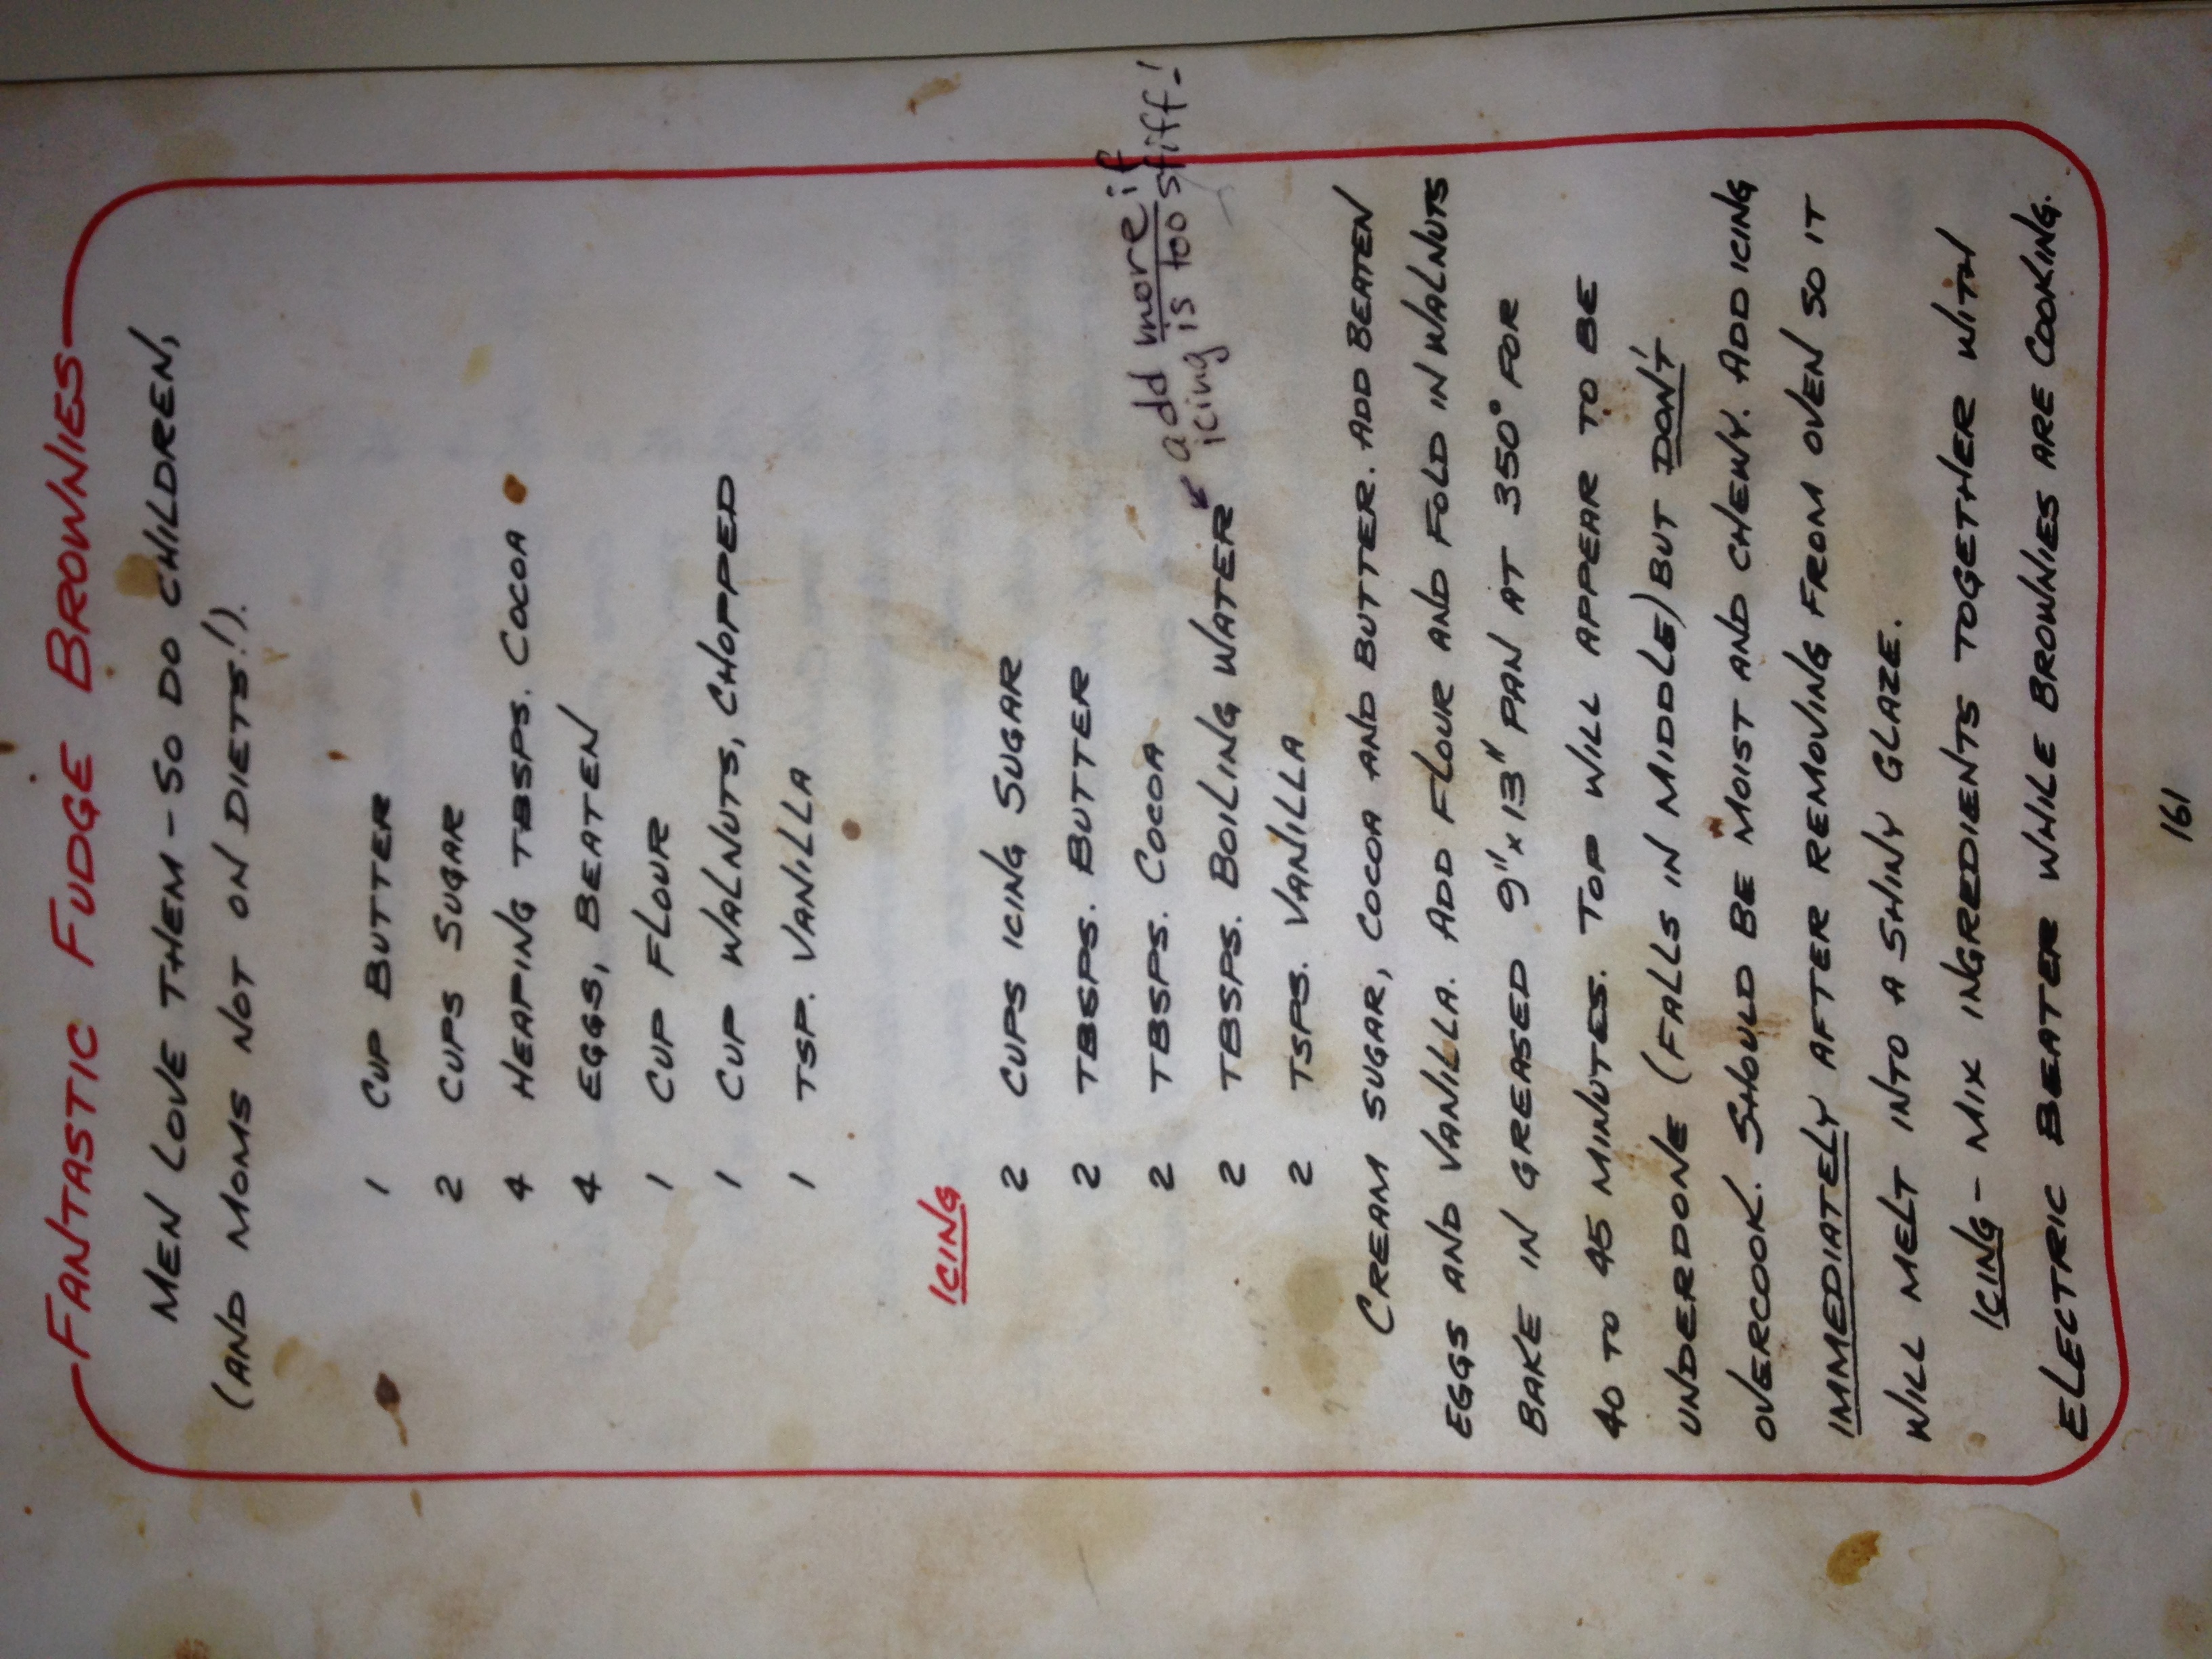 FANTASTIC FUDGE BROWNIES
MEN LOVE THEM - SO DO CHILDREN,
(AND MOMS NOT ON DIETS!).
1 CUP BUTTER
2 CUPS SUGAR
4 HEAPING TBSPS. COCOA
4 EGGS, BEATEN
1 CUP FLOUR
1 CUP WALNUTS, CHOPPED
1 TSP. VANILLA
ICING
2 CUPS ICING SUGAR
2 TBSPS. BUTTER
2 TBSPS. COCOA
2 TBSPS. BOILING WATER
add more if
icing is too stiff-!
2 TSPS. VANILLA
CREAM SUGAR, COCOA AND BUTTER. ADD BEATEN
EGGS AND VANILLA. ADD FLOUR AND FOLD IN WALNUTS
BAKE IN GREASED 9"x13" PAN AT 350° FOR
40 TO 45 MINUTES. TOP WILL APPEAR TO BE
UNDERDONE (FALLS IN MIDDLE) BUT DON'T
OVERCOOK. SHOULD BE MOIST AND CHEWY. ADD ICING
IMMEDIATELY AFTER REMOVING FROM OVEN SO IT
WILL MELT INTO A SHINY GLAZE.
ICING - MIX INGREDIENTS TOGETHER WITH
ELECTRIC BEATER WHILE BROWNIES ARE COOKING.
161